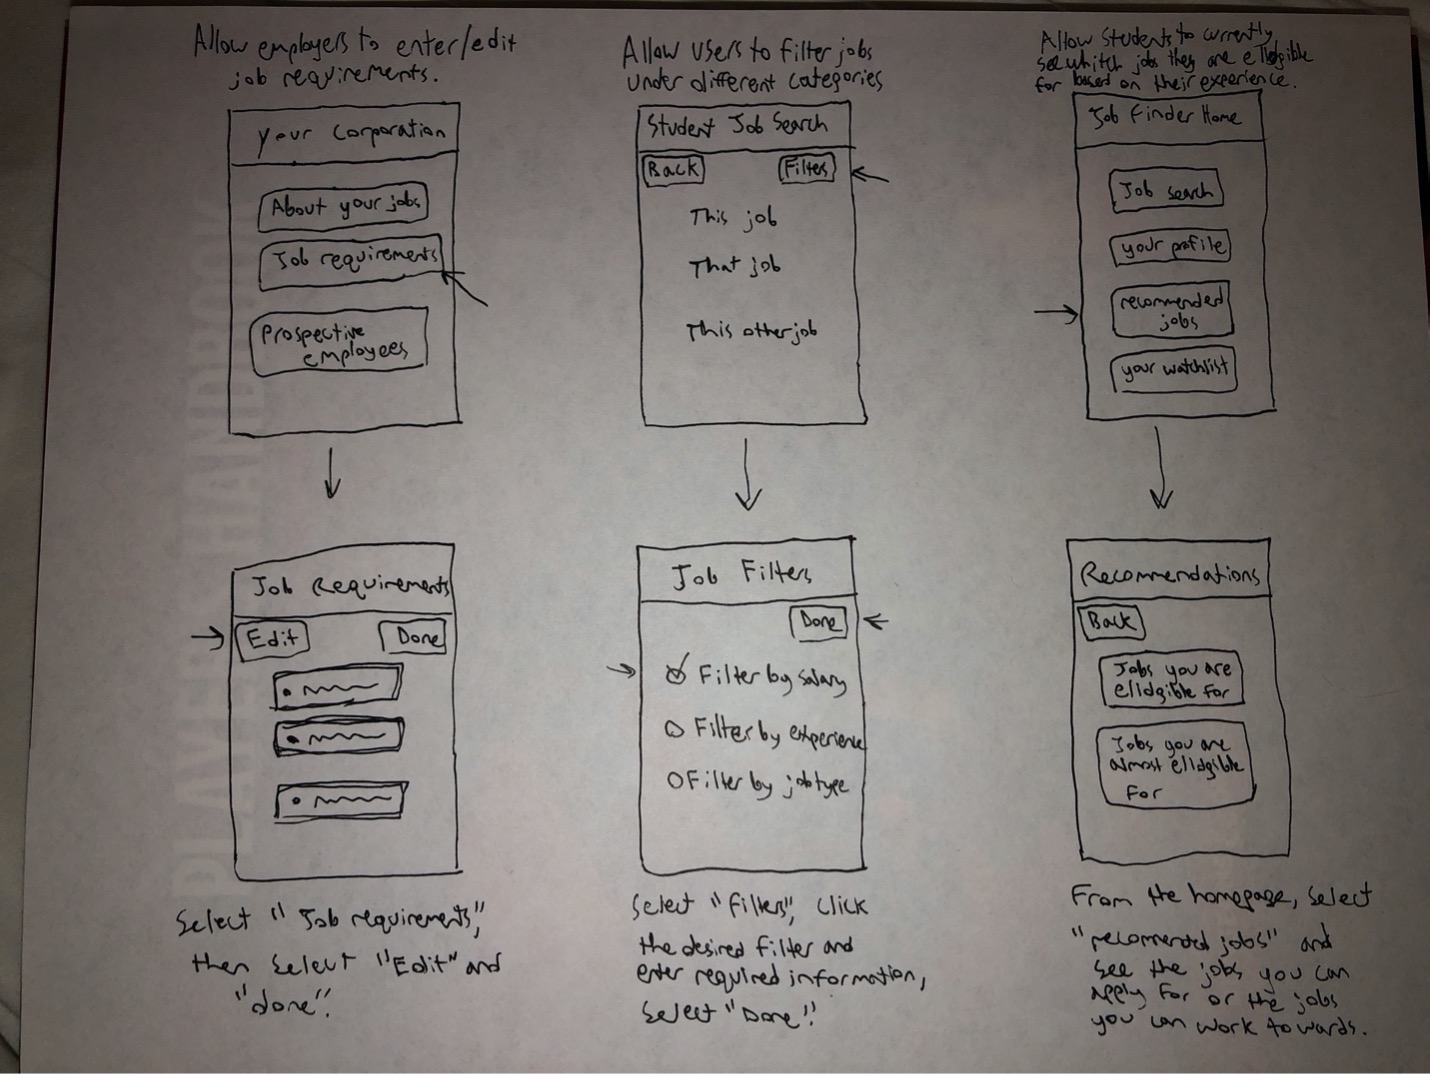 Allow employers to enter/edit
job requirements.
Your Corporation
About your jobs
Job requirements
Prospective
employees
Job Requirements
Edit
Done
Select "Job requirements",
then select "Edit" and
"done".
Allow users to filter jobs
under different categories
Student Job Search
Back
Filter
This job
That job
This other job
Job Filters
Done
Filter by salary
Filter by experience
Filter by job type
Select "filters", click
the desired filter and
enter required information,
Select "Done".
Allow students to currently
see whitch jobs they are ellidgible
for based on their experience.
Job Finder Home
Job search
your profile
recommended
jobs
your watchlist
Recommendations
Back
Jobs you are
ellidgible for
Jobs you are
almost ellidgible
for
From the homepage, select
"recomended jobs" and
see the jobs you can
apply for or the jobs
you can work towards.